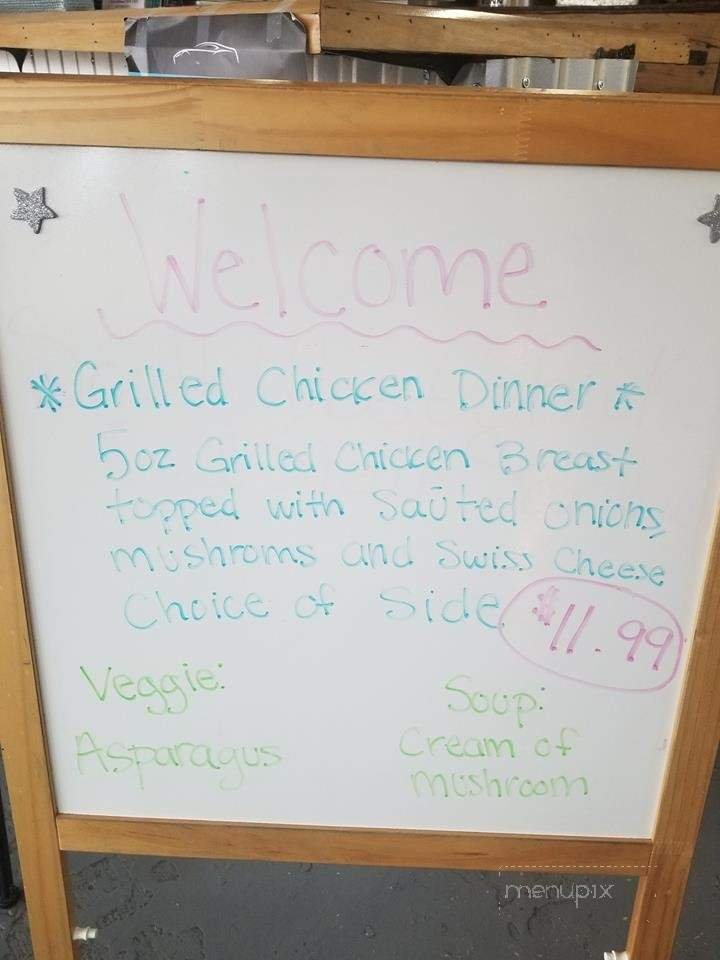 Welcome
*Grilled Chicken Dinner*
5oz Grilled Chicken Breast
topped with Saūted onions,
mushroms and Swiss Cheese
Choice of Side $11.99
Veggie:
Asparagus
Soup:
Cream of
mushroom
menupix